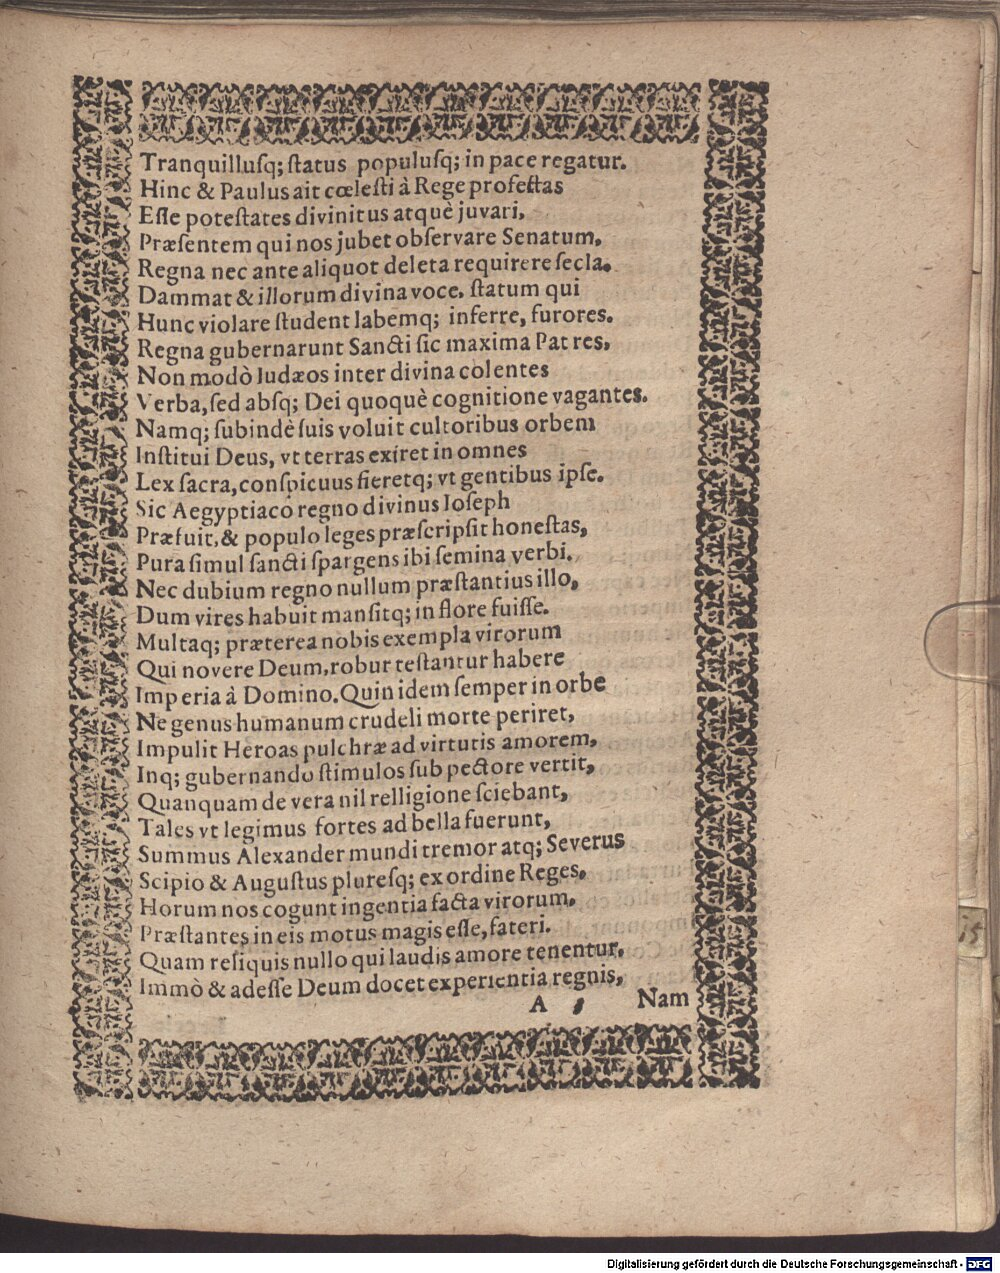 Tranquilluſq; ſtatus populuſq; in pace regatur.
Hinc & Paulus ait cœleſti à Rege profectas
Eſſe poteſtates divinitus atquè juvari,
Præſentem qui nos jubet obſervare Senatum,
Regna nec ante aliquot deleta requirere ſecla.
Dammat & illorum divina voce. ſtatum qui
Hunc violare ſtudent labemq; inferre, furores.
Regna gubernarunt Sancti ſic maxima Patres,
Non modò Iudæos inter divina colentes
Verba, ſed abſq; Dei quoquè cognitione vagantes.
Namq; ſubindè ſuis voluit cultoribus orbem
Inſtitui Deus, vt terras exiret in omnes
Lex ſacra, conſpicuus fieretq; vt gentibus ipſe.
Sic Aegyptiaco regno divinus Ioſeph
Præfuit, & populo leges præſcripſit honeſtas,
Pura ſimul ſancti ſpargens ibi ſemina verbi.
Nec dubium regno nullum præſtantius illo,
Dum vires habuit manſitq; in flore fuiſſe.
Multaq; præterea nobis exempla virorum
Qui novere Deum, robur teſtantur habere
Imperia à Domino. Quin idem ſemper in orbe
Ne genus humanum crudeli morte periret,
Impulit Heroas pulchræ ad virtutis amorem,
Inq; gubernando ſtimulos ſub pectore vertit,
Quanquam de vera nil relligione ſciebant,
Tales vt legimus fortes ad bella fuerunt,
Summus Alexander mundi tremor atq; Severus
Scipio & Auguſtus pluresq; ex ordine Reges.
Horum nos cogunt ingentia facta virorum.
Præſtantes in eis motus magis eſſe, fateri.
Quam reſiquis nullo qui laudis amore tenentur,
Immò & adeſſe Deum docet experientia regnis,
A Nam
15
Digitalisierung gefördert durch die Deutsche Forschungsgemeinschaft - DFG